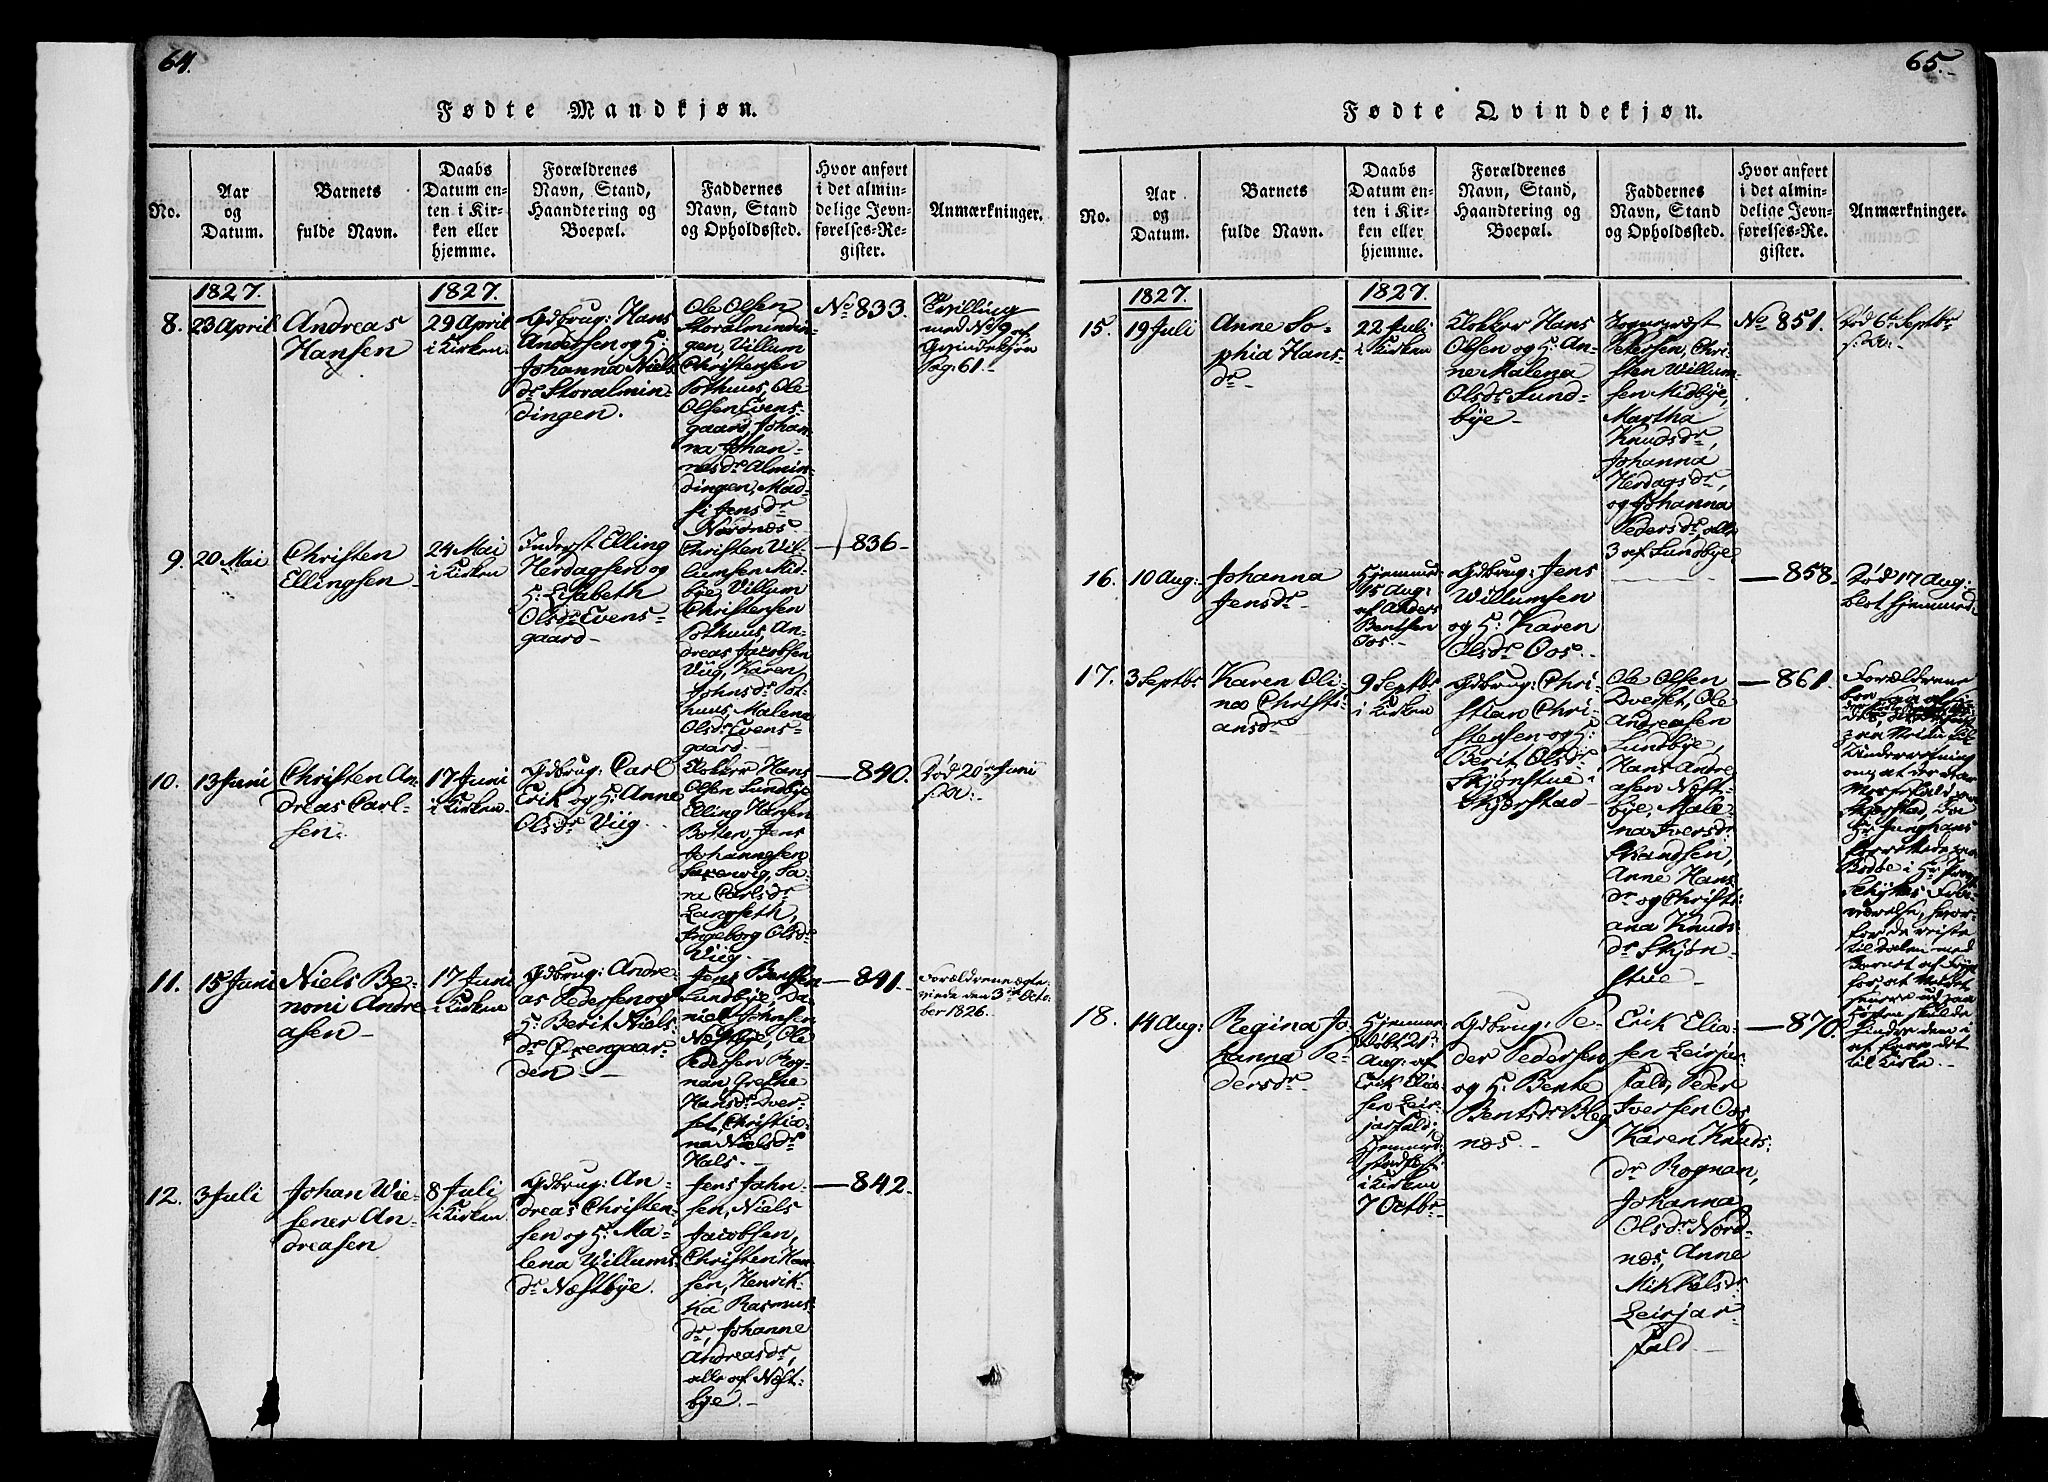 64.
Fødte Mandkjøn.
No.
Aar
og
Datum.
Barnets
fulde Navn.
Daabs
Datum en-
ten i Kir-
ken eller
hjemme.
Forældrenes
Navn, Stand,
Haandtering og
Boepæl.
Faddernes
Navn, Stand
og Opholdssted.
Hvor anført
i det almin-
delige Jevn-
førelses-Re-
gister.
Anmærkninger.
1827.
8.
23 April
Andreas
Hansen
1827.
29 April
i Kirken
Gdbrug: Hans
Andersen og H:
Johanna Niels
dr Storalmin-
dingen.
Ole Olsen
Storalmindin-
gen, Villum
Christensen
Pothuus, Ole
Olsen Evens-
gaard, Johan-
na Johan-
nesdr Almin-
dingen, Mad-
si Jensdr
Nordnæs
No 833.
Tvilling
med No 9 af
Qvindekjøn
Pag: 61.
9.
20 Mai
Christen
Ellingsen
24 Mai
i Kirken
Inderst Elling
Herdagsen og
H: Lisabeth
Olsdr Evens-
gaard
Christen Vil-
lumsen Mid-
bye, Villum
Christensen
Pothuus, An-
dreas Jacobsen
Viig, Karen
Johnsdr Pot-
huus, Malena
Olsdr Evens-
gaard
836
10.
13 Juni
Christen An-
dreas Carl-
sen.
17 Juni
i Kirken
Gdbrug: Carl
Erik og H: Anne
Olsdr Viig.
Klokker Hans
Olsen Lundbye
Elling Hansen
Botten, Jens
Johannesen
Saxenvig, Sa-
na Carlsdr
Langseth,
Ingeborg Olsdr
Viig.
840.
Død 20de Juni
s: A:
11.
15 Juni
Niels Be-
noni Andre
asen
17 Juni
i Kirken
Gdbrug: Andre-
as Pedersen og
H: Berit Niels-
dr Øxengaar-
den
Jens Bentsen
Lundbye, Da-
niel Johnsen
Næstbye, Ole
Pedersen Rog-
nan, Grethe
Hansdr Dver-
set, Christia-
na Nielsdr
Hals.
841.
Forældrene ægte-
viede den 3die Octo-
ber 1826.
12.
3 Juli
Johan Wie-
sener An-
dreasen
8 Juli
i Kirken
Gdbrug: An-
dreas Christen-
sen og H: Ma-
lena Willums
dr Næstbye.
Jens Jahn-
sen, Niels
Jacobsen,
Christen Han-
sen, Henrik-
ka Rasmus-
dr, Johanne
Andreasdr,
alle af Næst-
bye.
842.
65.
Fødte Qvindekjøn.
No.
Aar
og
Datum.
Barnets
fulde Navn.
Daabs
Datum en-
ten i Kir-
ken eller
hjemme.
Forældrenes
Navn, Stand,
Haandtering og
Boepæl.
Faddernes
Navn, Stand
og Opholdssted.
Hvor anført
i det almin-
delige Jevn-
førelses-Re-
gister.
Anmærkninger.
1827.
15.
19 Juli
Anne So-
phia Hans-
dr
1827.
22 Juli
i Kirken
Klokker Hans
Olsen og H: An-
ne Malena
Olsdr Lund-
bye
Sognepræst
Petersen, Chri-
sten Willum-
sen Midbye,
Martha
Knudsdr,
Johanna
Herdagsdr,
og Johanna
Pedersdr, alle
3 af Lundbye
No 851.
Død 6te Septbr
s: A:
16.
10 Aug:
Johanna
Jensdr
Hjemmed:
15 Aug:
af Anders
Bentsen
Oos.
Gdbrug: Jens
Willumsen
og H: Karen
Olsdr Oos.
858.
Død 17 Aug:
blot hjemmed:
17.
3 Septbr
Karen Oli-
na Christi-
ansdr
9 Septbr
i Kirken
Gdbrug: Chri-
stian Chri-
stensen og H:
Berit Olsdr
Skjønstue i
Skjerstad
Ole Olsen
Dverset, Ole
Andreasen
Lundbye,
Hans Andre
asen Næst-
bye, Male-
na Iversdr
Skandsen,
Anne Hans
dr og Christi-
ana Knuds
dr Skjøn-
stue
861.
Forældrene
til Dalen med
Barnet af Frygt
for at Veiret
senere ud paa
Høsten skulde
hindre dem i
at faae det
til Kirke.
18.
14 Aug:
Regina Jo-
hanna Pe-
dersdr
Hjemme
døbt 21de
Aug: af
Erik Elia-
sen Leir-
jarfald,
Hjemmed:
stadfest:
i Kirken
7 Octbr
Gdbrug: Pe-
der Pedersen
og H: Bente
Bentsdr Bleg
næs.
Erik Elia-
sen Leirjar
fald, Peder
Iversen Oos,
Karen Knuds-
dr Rognan,
Johanna
Olsdr Nord-
næs, Anne
Mikkelsdr
Leirjar-
fald.
870.